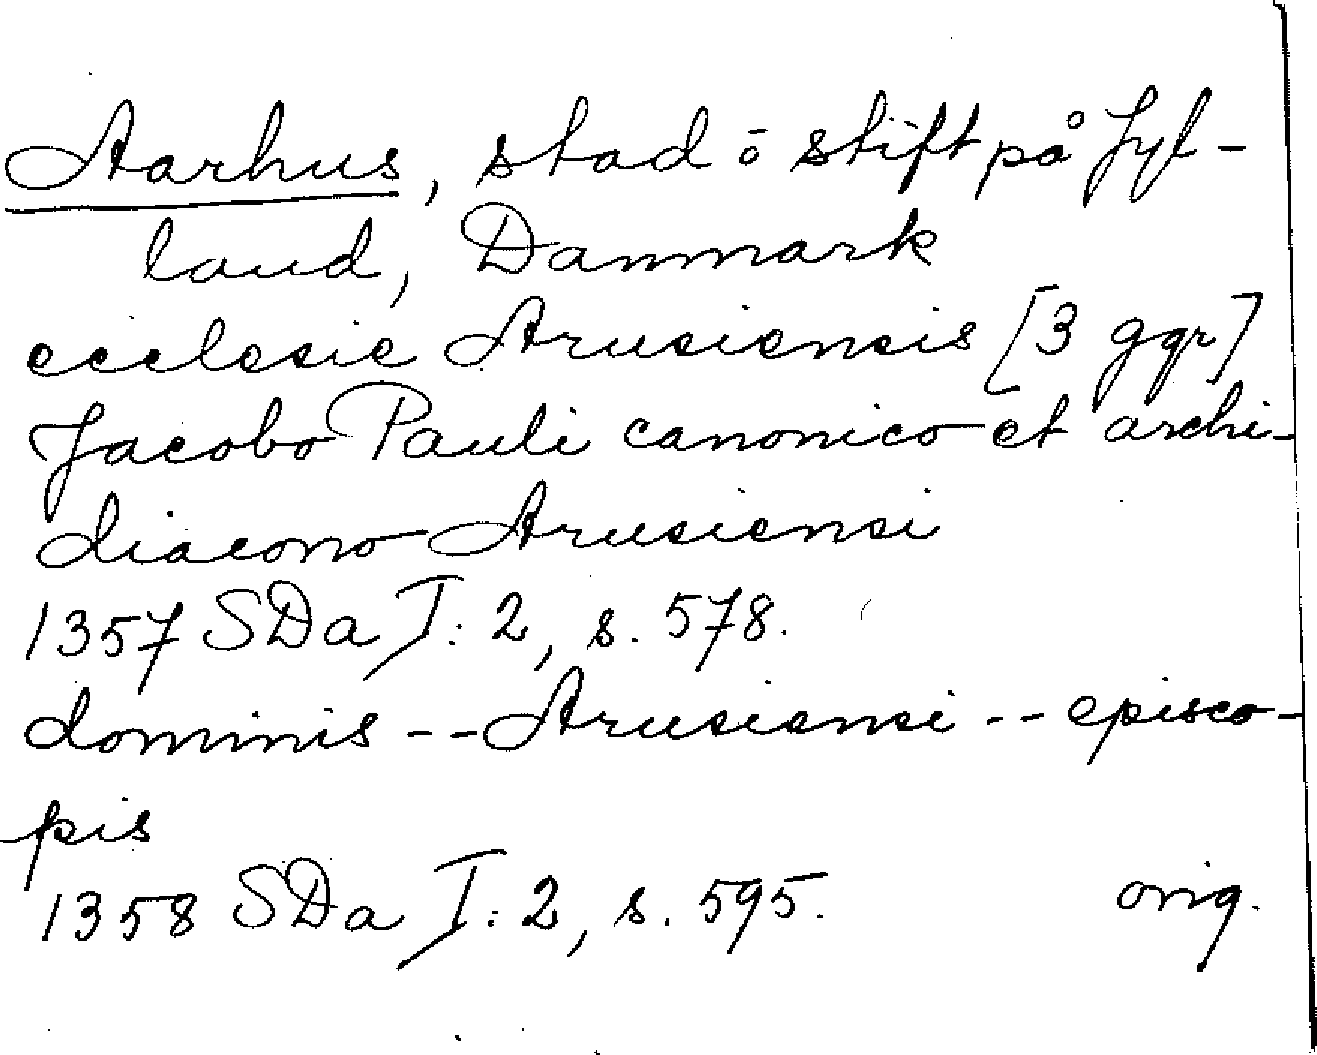 Aarhus, stad ō stift på Jyl-
land, Danmark
ecclesie Arusiensis [3 ggr]
Jacobo Pauli canonico et archi-
diacono Arusiensi
1357 SDa I: 2, s. 578.
dominis -- Arusiensi -- episco-
pis
1358 SDa I: 2, s. 595. orig.